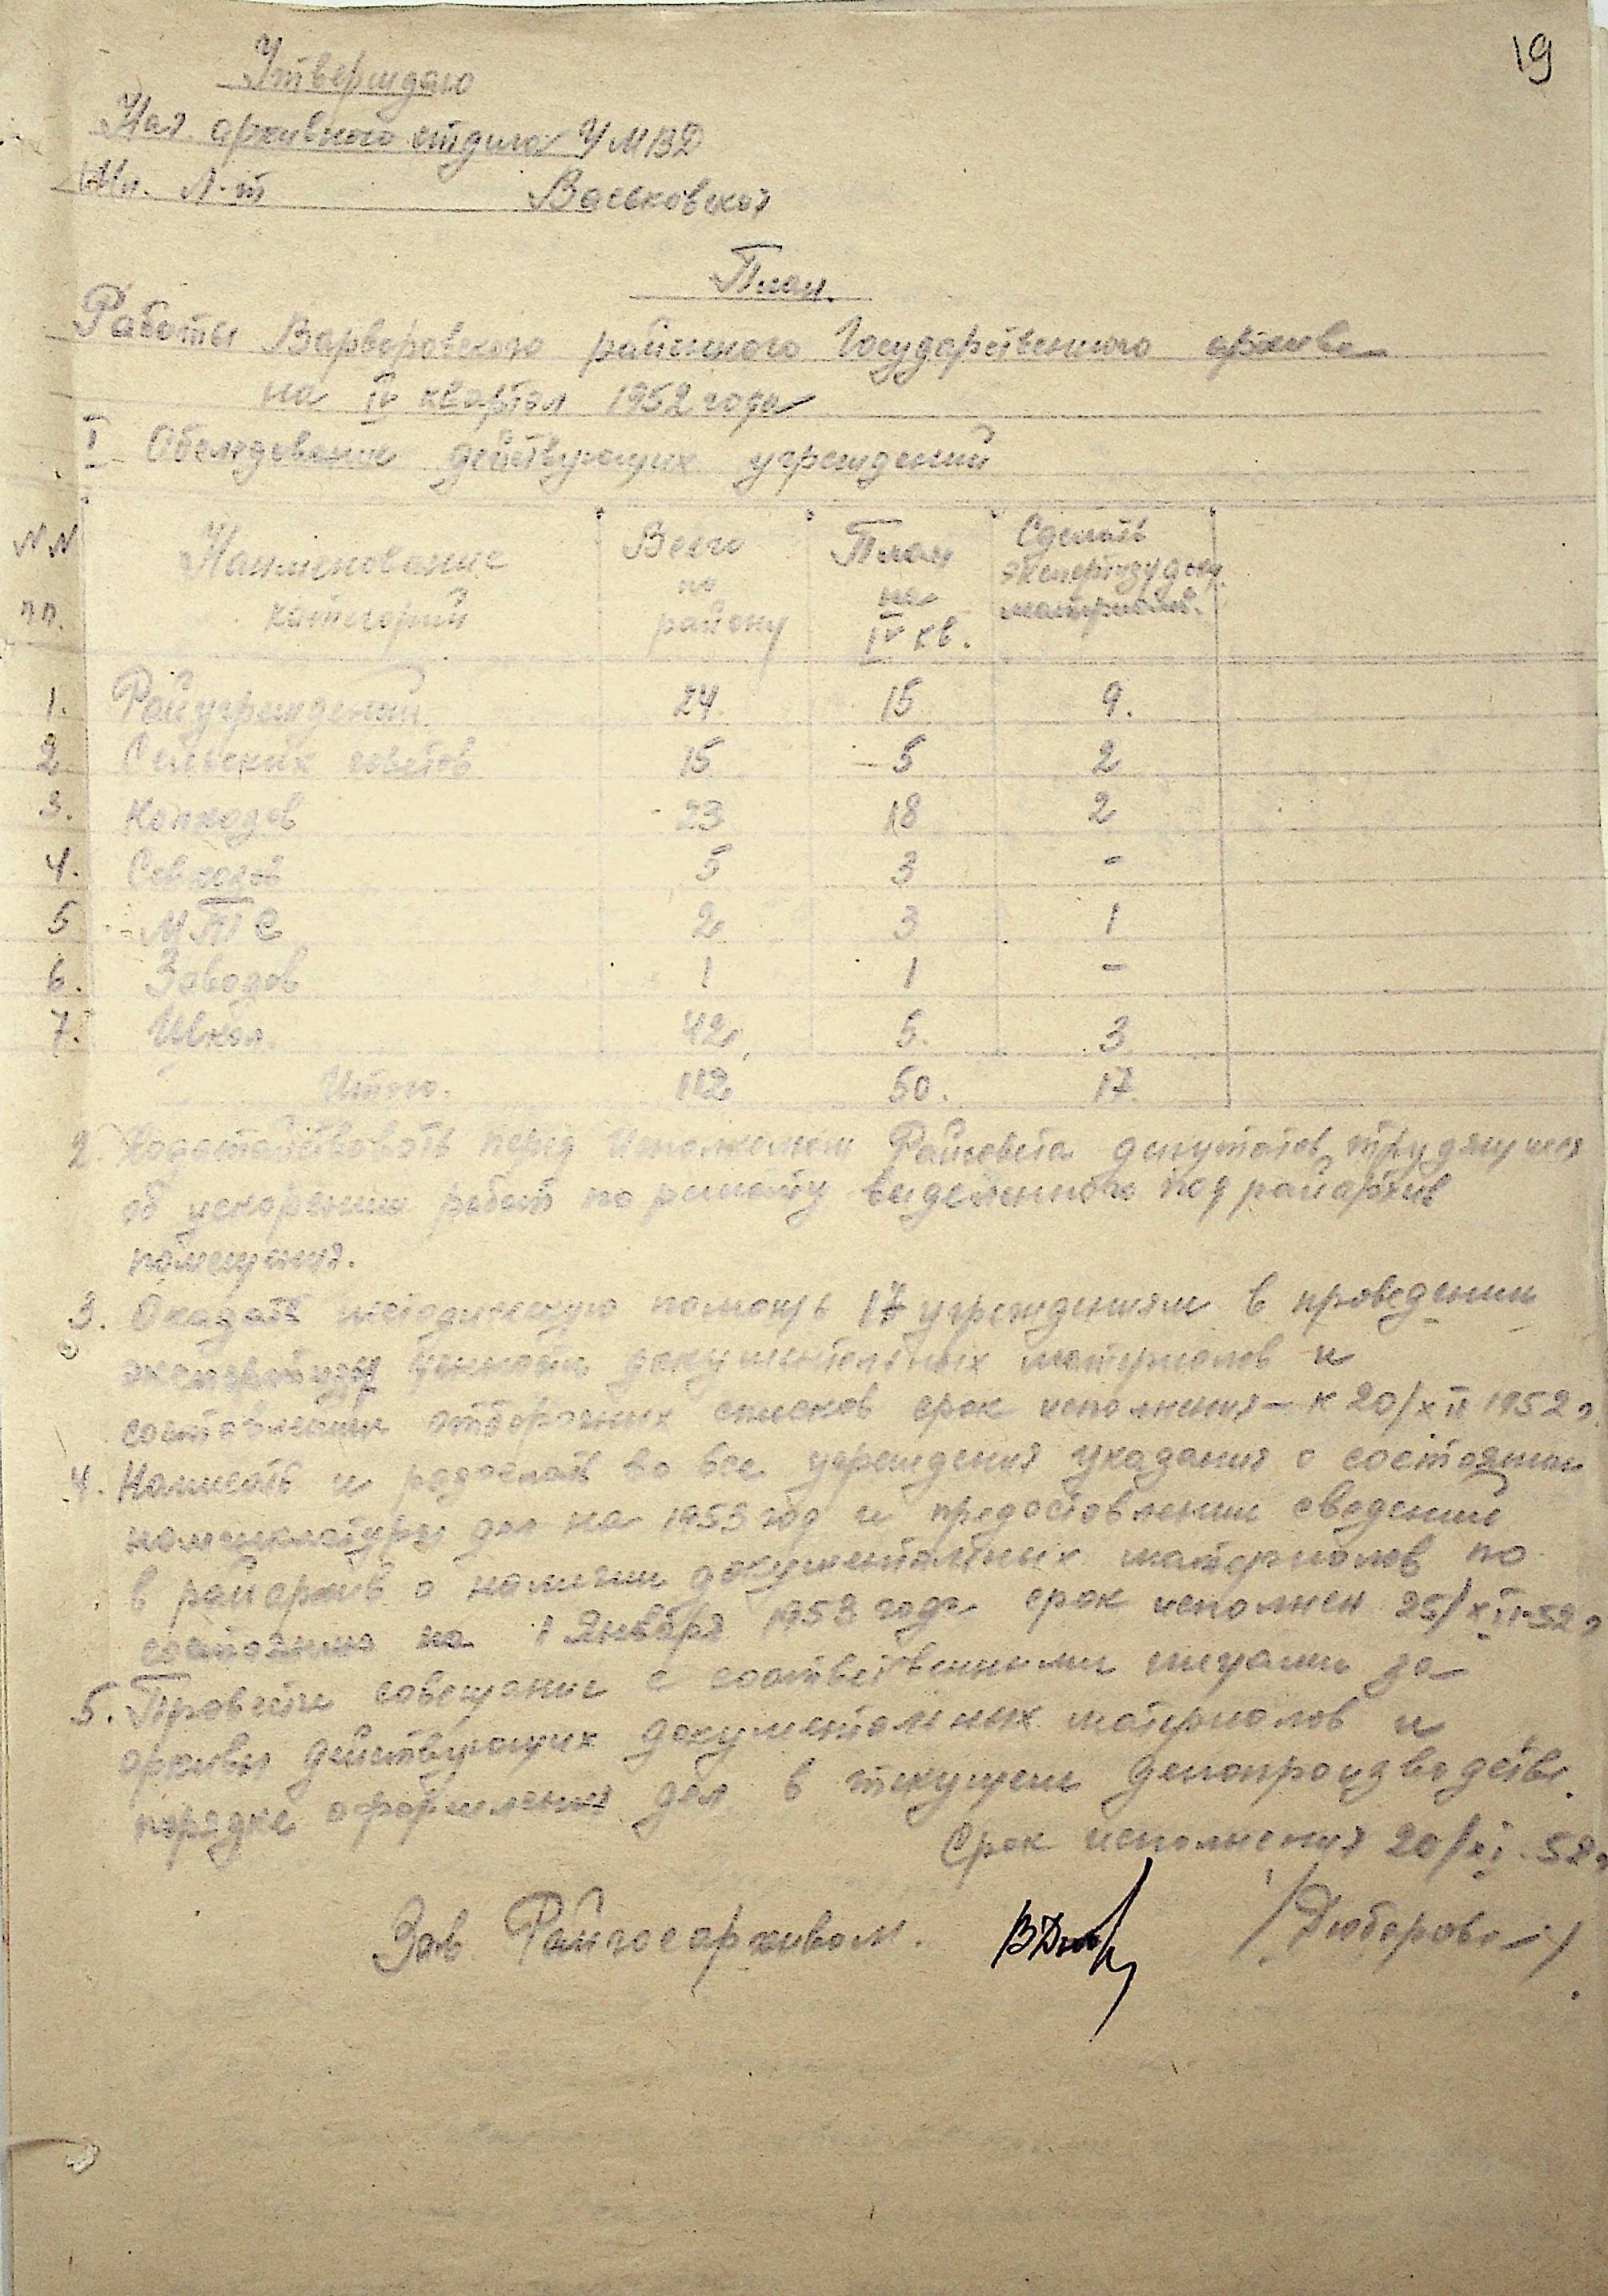 19
Утверждаю
Нач. архивного отдела УМВД
Мл. Л-т Васьковская
План
Работы Варваровского районного Государственного архива
на IV квартал 1952 года
I Обследование действующих учреждений
NN пп. Наименование категорий Всего по району План на IV кв. Сделать экспертизу док. материалов.
1. Райучреждений 24 15 9.
2 Сельских советов 15 5 2
3. Колхозов 23 18 2
4. Совхозов 5 3 -
5 МТС 2 3 1
6. Заводов 1 1 -
7. Школ. 42 5. 3
Итого. 112 50. 17.
2. Ходатайствовать перед Исполкомом Райсовета депутатов трудящихся
об ускорении работ по ремонту выделенного под райархив
помещения.
3. Оказать методическую помощь 17 учреждениям в проведении
экспертизы ценности документальных материалов и
составлении отборочных списков срок исполнения - к 20/XII 1952 г.
4. Написать и разослать во все учреждения указания о
номенклатуры дел на 1953 год и предоставлении сведений
в райархив о наличии документальных материалов по
состоянию на 1 Января 1953 года срок исполнен 25/XII-52 г
5. Провести совещание с за
архивы действующих документальных материалов и
порядке оформления дел в текущем делопроизводстве.
Срок исполнения 20/XI-52 г
Зав Райгосархивом. /Дюборова/